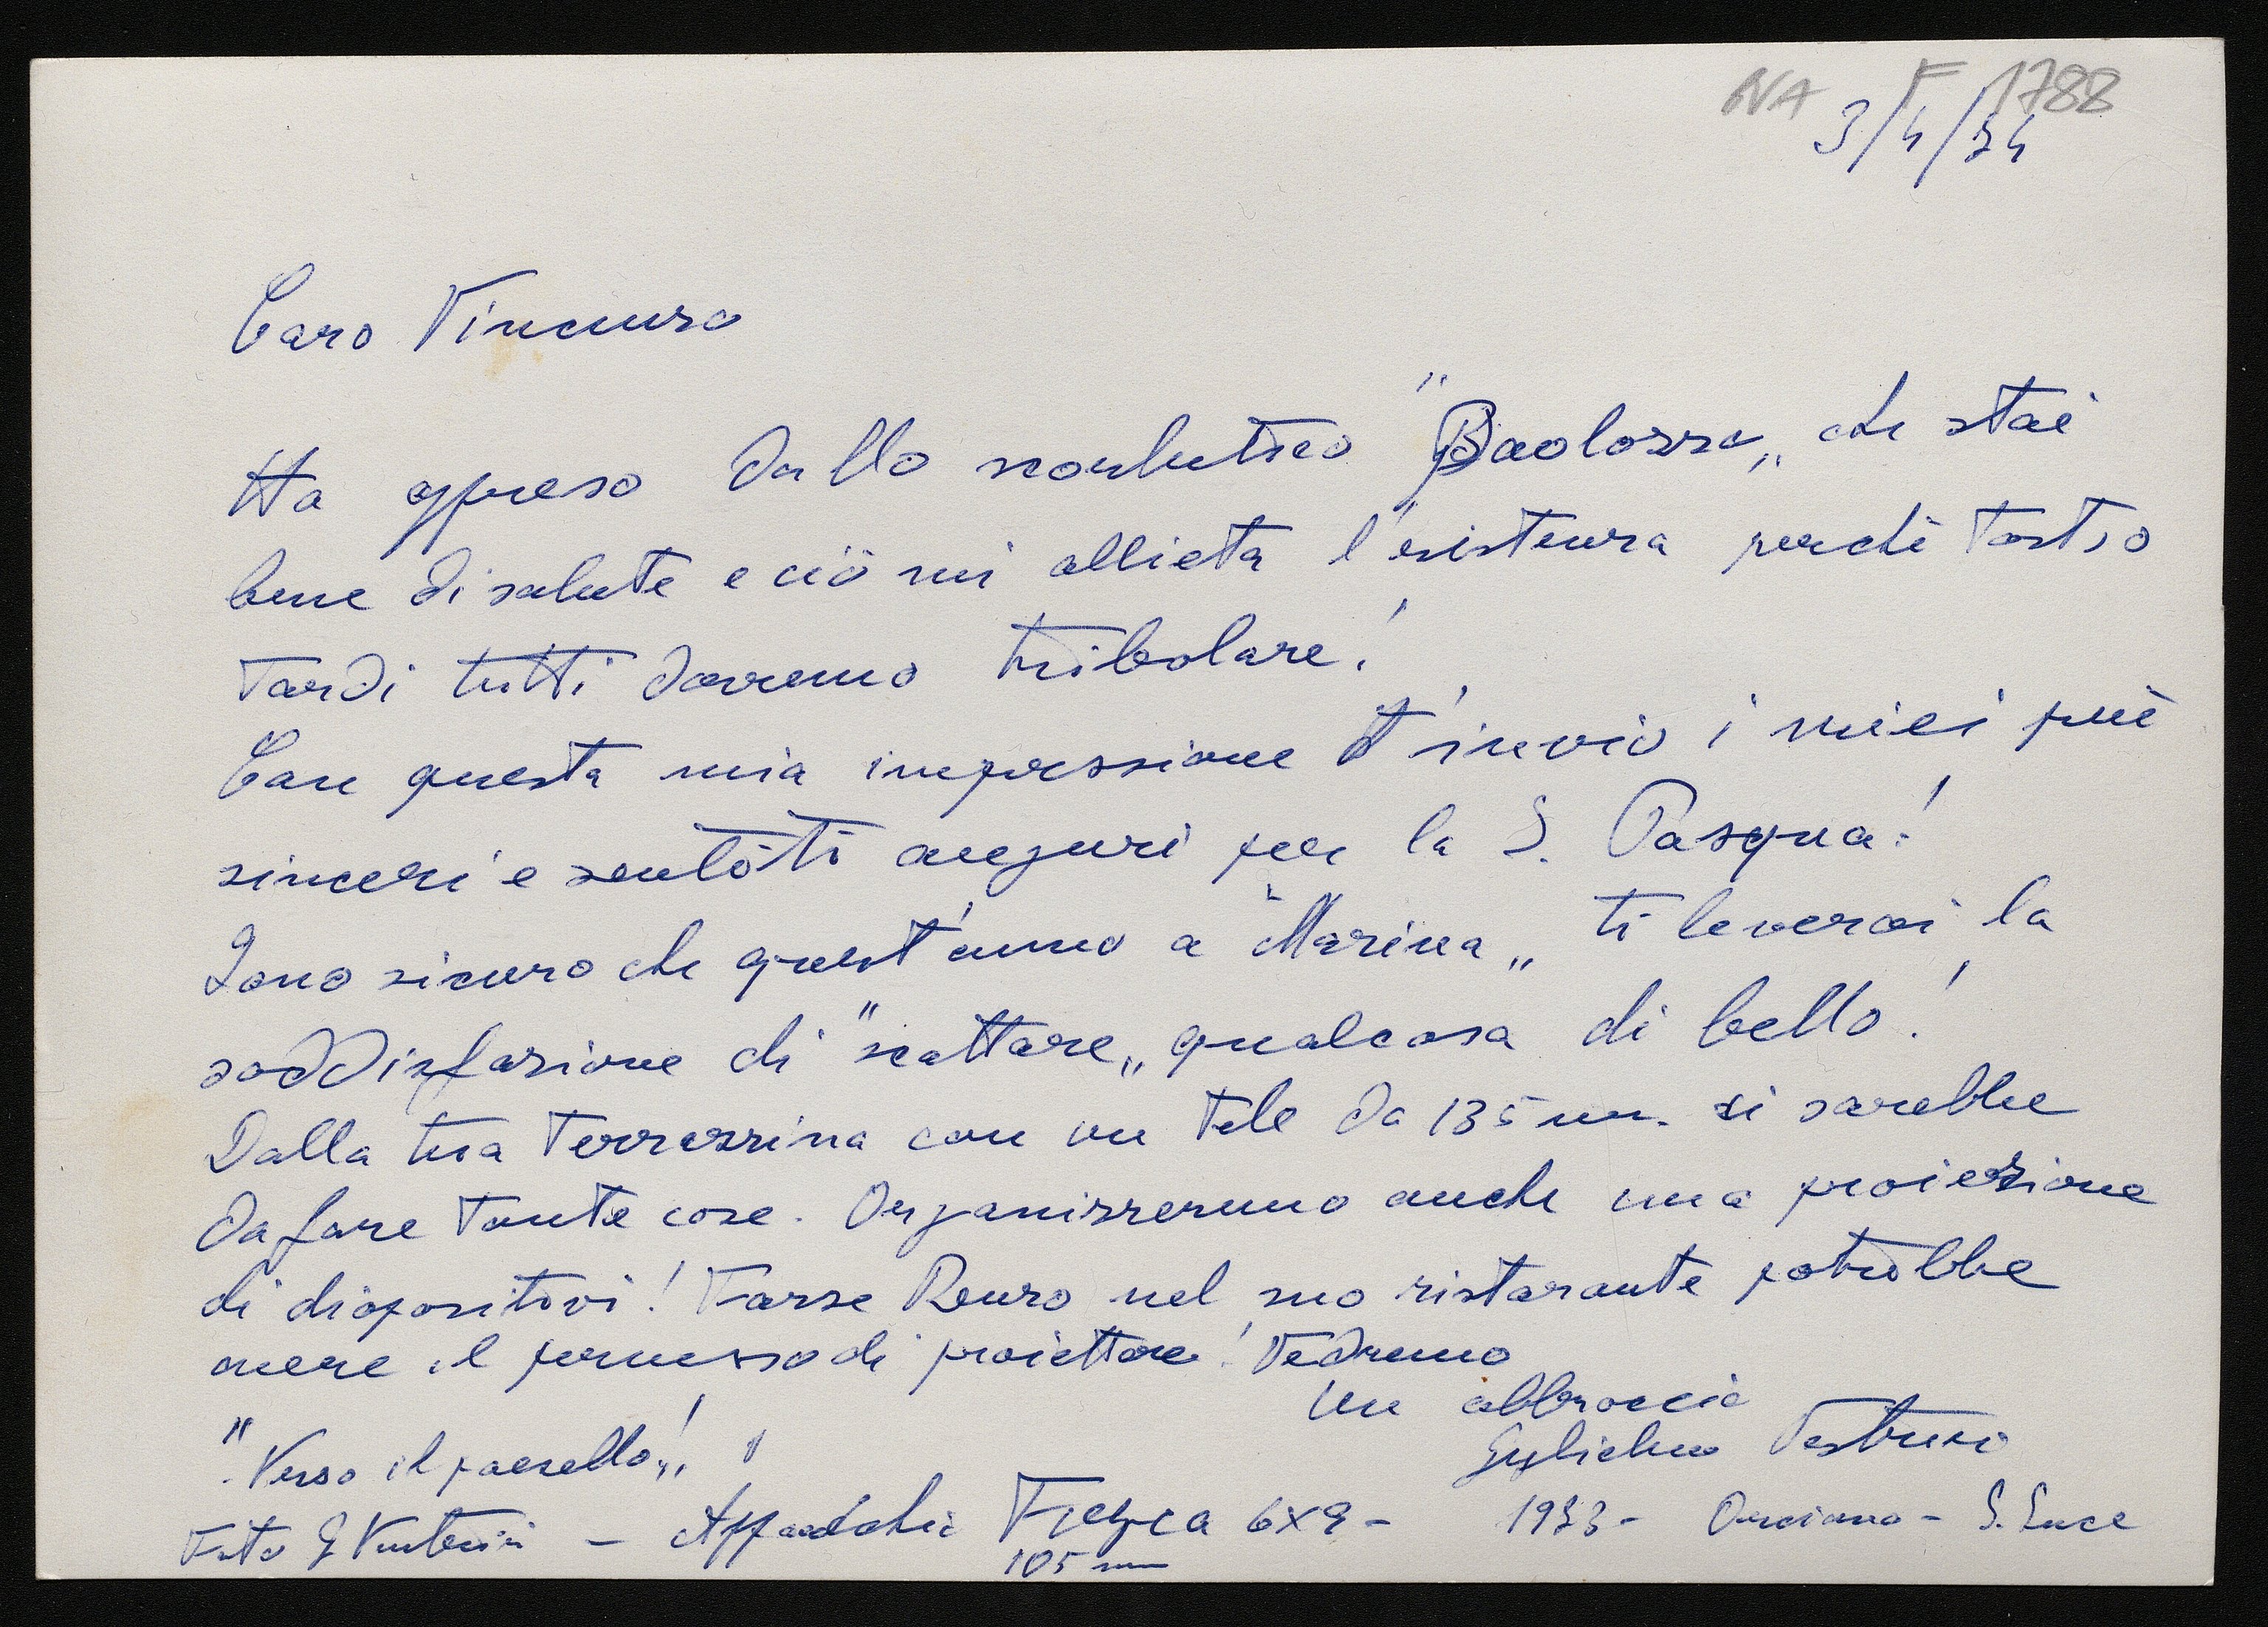 NA F 1788
3/4/74
Caro Vincenzo
Ho appreso dallo scorbutico "Paolozzo„ che stai
bene di salute e ciò mi allieta l'esistenza perchè tosto o
tardi tutti dovremo tribolare!
Con questa mia impressione t'invio i miei più
sinceri e sentiti auguri per la S. Pasqua!
Sono sicuro che quest'anno a "Marina„ ti leverai la
soddisfazione di "scattare„ qualcosa di bello!
Dalla tua terrazzina con un tele da 135 mm. si sarebbe
da fare tante cose. Organizzeremo anche una proiezione
di diapositivi! Forse Renzo nel suo ristorante potrebbe
avere il permesso di proiettare! Vedremo
Un abbraccio
Guglielmo
"Verso il paesello!„
Foto G - Apparecchio 6x9 - Orciano - S. Luce
105 mm